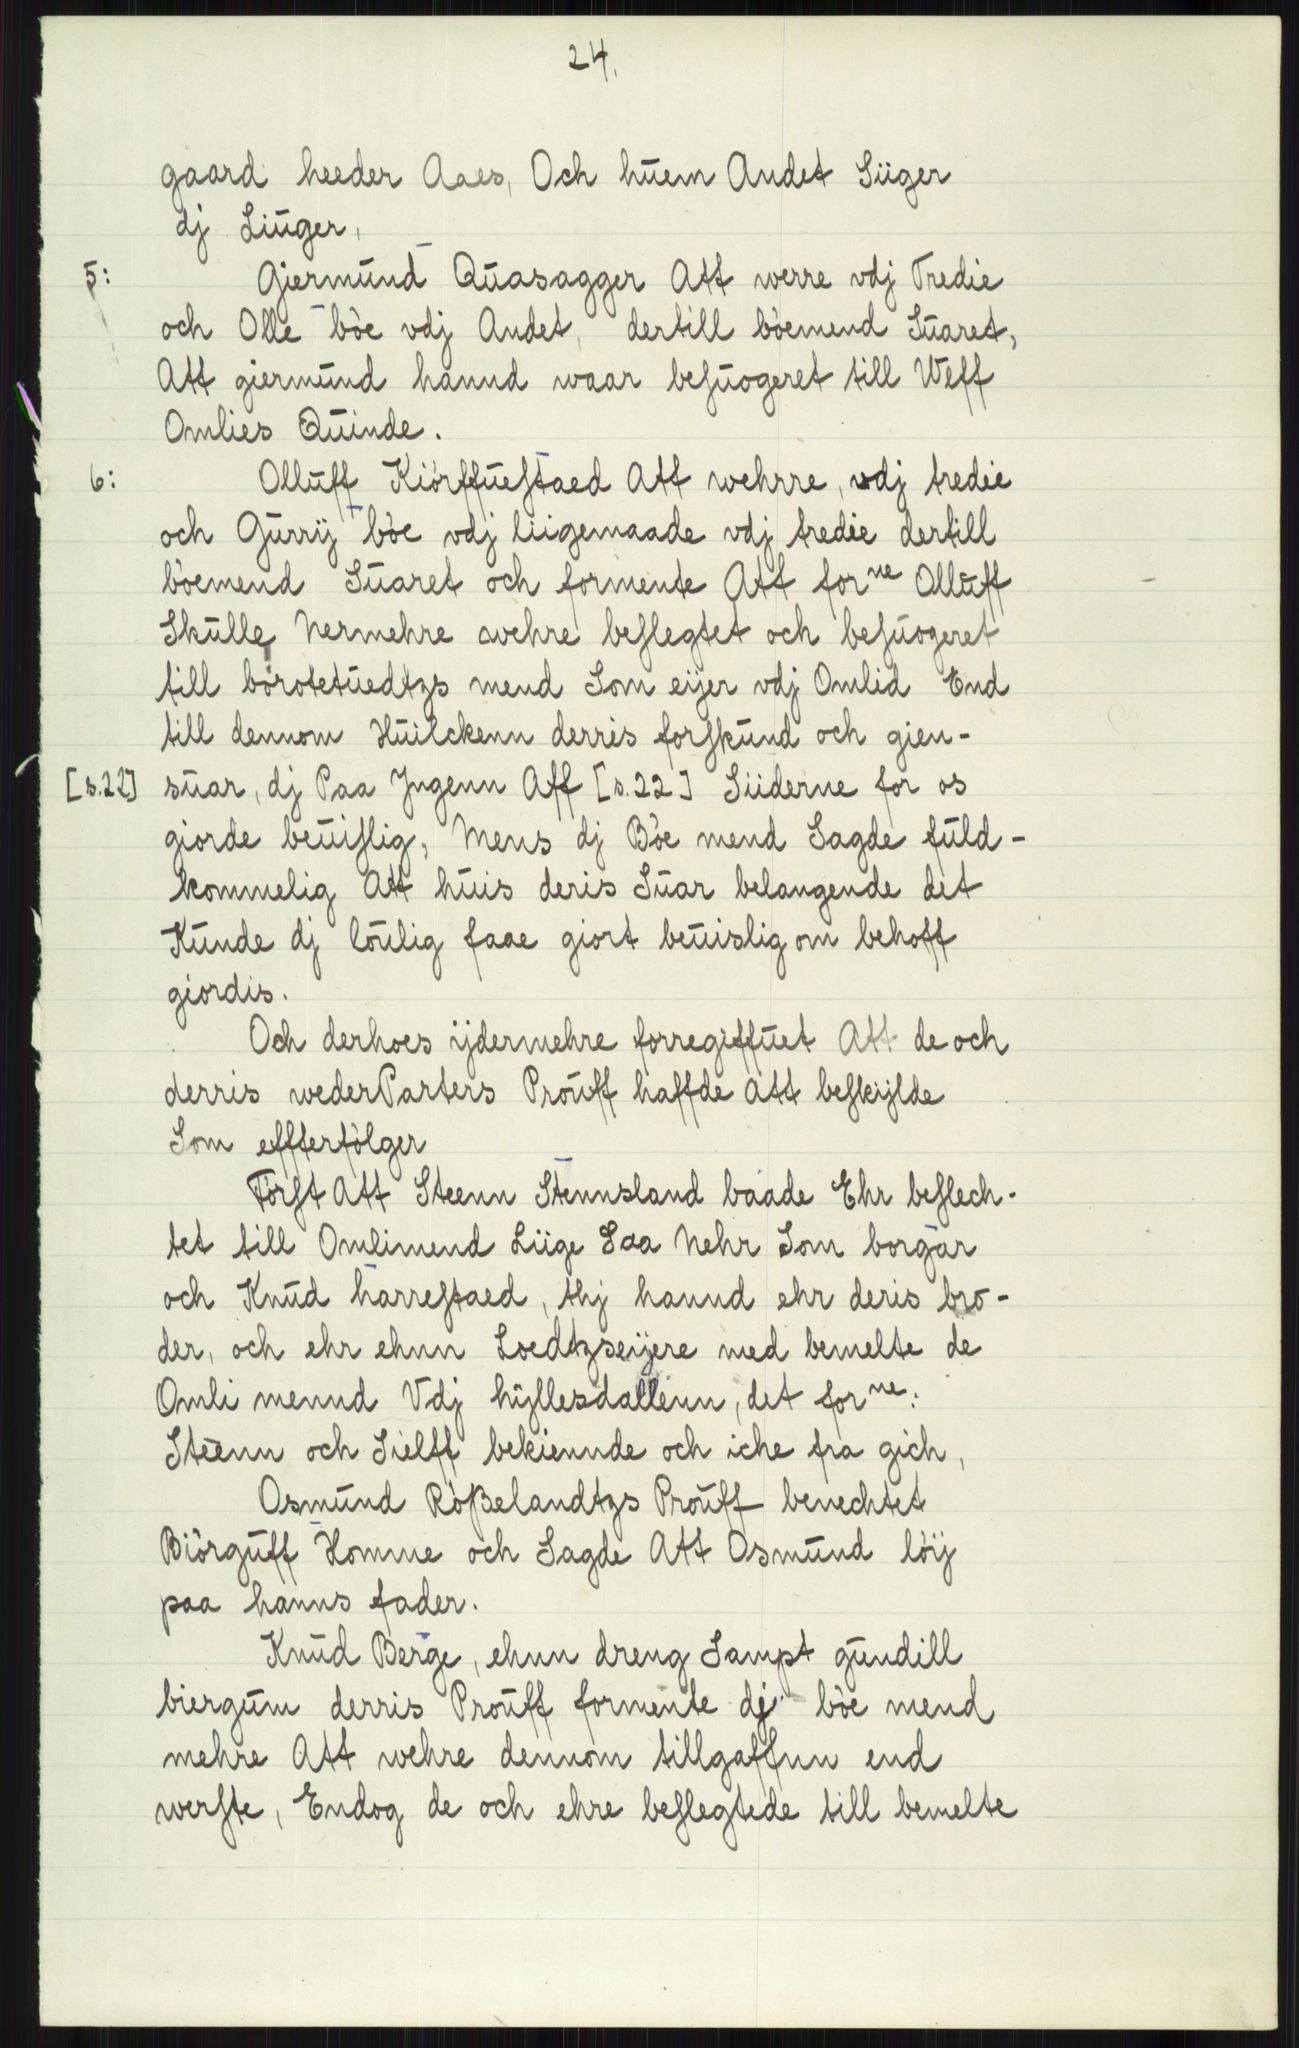 24.
gaard heeder Aaes, Och huem Andet Siiger
dj Liuger,
5: Gjermund Quasagger Att werre vdj Tredie
och Olle böe vdj Andet, dertill böemend Suaret,
Att giermund hannd waar besuogeret till Weff
Omlies Quinde.
6: Olluff Kiörffuestaed Att wehrre, vdj tredie
och Gurrÿ böe vdj liigemaade vdj tredie dertill
böemend Suaret och formente Att for ne Olluff
Skulle Nermehre wehre beslegtet och besuogeret
till börotetuedtzs mend Som eÿer vdj Omlid End
till dennom Huilckenn derris forskund och gien-
[s.22] suar, dj Paa Jngenn Aff [s.22] Siiderne for os
giorde beuislig, Mens dj Böe mend Sagde fuld-
kommelig Att huis deris Suar belangende det
Kunde dj loulig faae giort beuislig om behoff
giordis.
Och derhoes ÿdermehre forregiffuet Att de och
derris wederParters Prouff haffde Att beskÿlde
Som effterfölger
Först Att Steenn Stennsland baade Ehr beslech-
tet till Omlimend Liige Saa Nehr Som borgar
och Knud harrestaed, thj hannd ehr deris bro-
der, och ehr ehnn Loedtzseÿere med bemelte de
Omli mennd Vdj hÿllesdallenn, det for ne:
Steenn och Sielff bekiennde och iche fra gich,
Osmund Rößelandtzs Prouff benechtet
Biörguff Homme och Sagde Att Osmund löÿ
paa hanns fader.
Knud Berge, ehnn dreng Sampt gundill
biergum derris Prouff formente dj böe mend
mehre Att wehre dennom tillgaffnn end
werste, Endog de och ehre beslegtede till bemelte